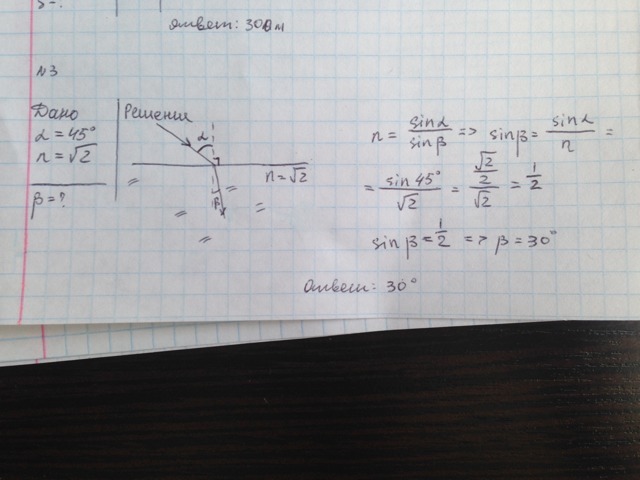 Ответ: 300 м
N3
Дано
α = 45°
n = √2
β = ?
Решение
α
n = √2
β
n = sinα/sinβ => sinβ = sinα/n =
= sin 45°/√2 = (√2/2)/√2 = 1/2
sin β = 1/2 => β = 30°
Ответ: 30°